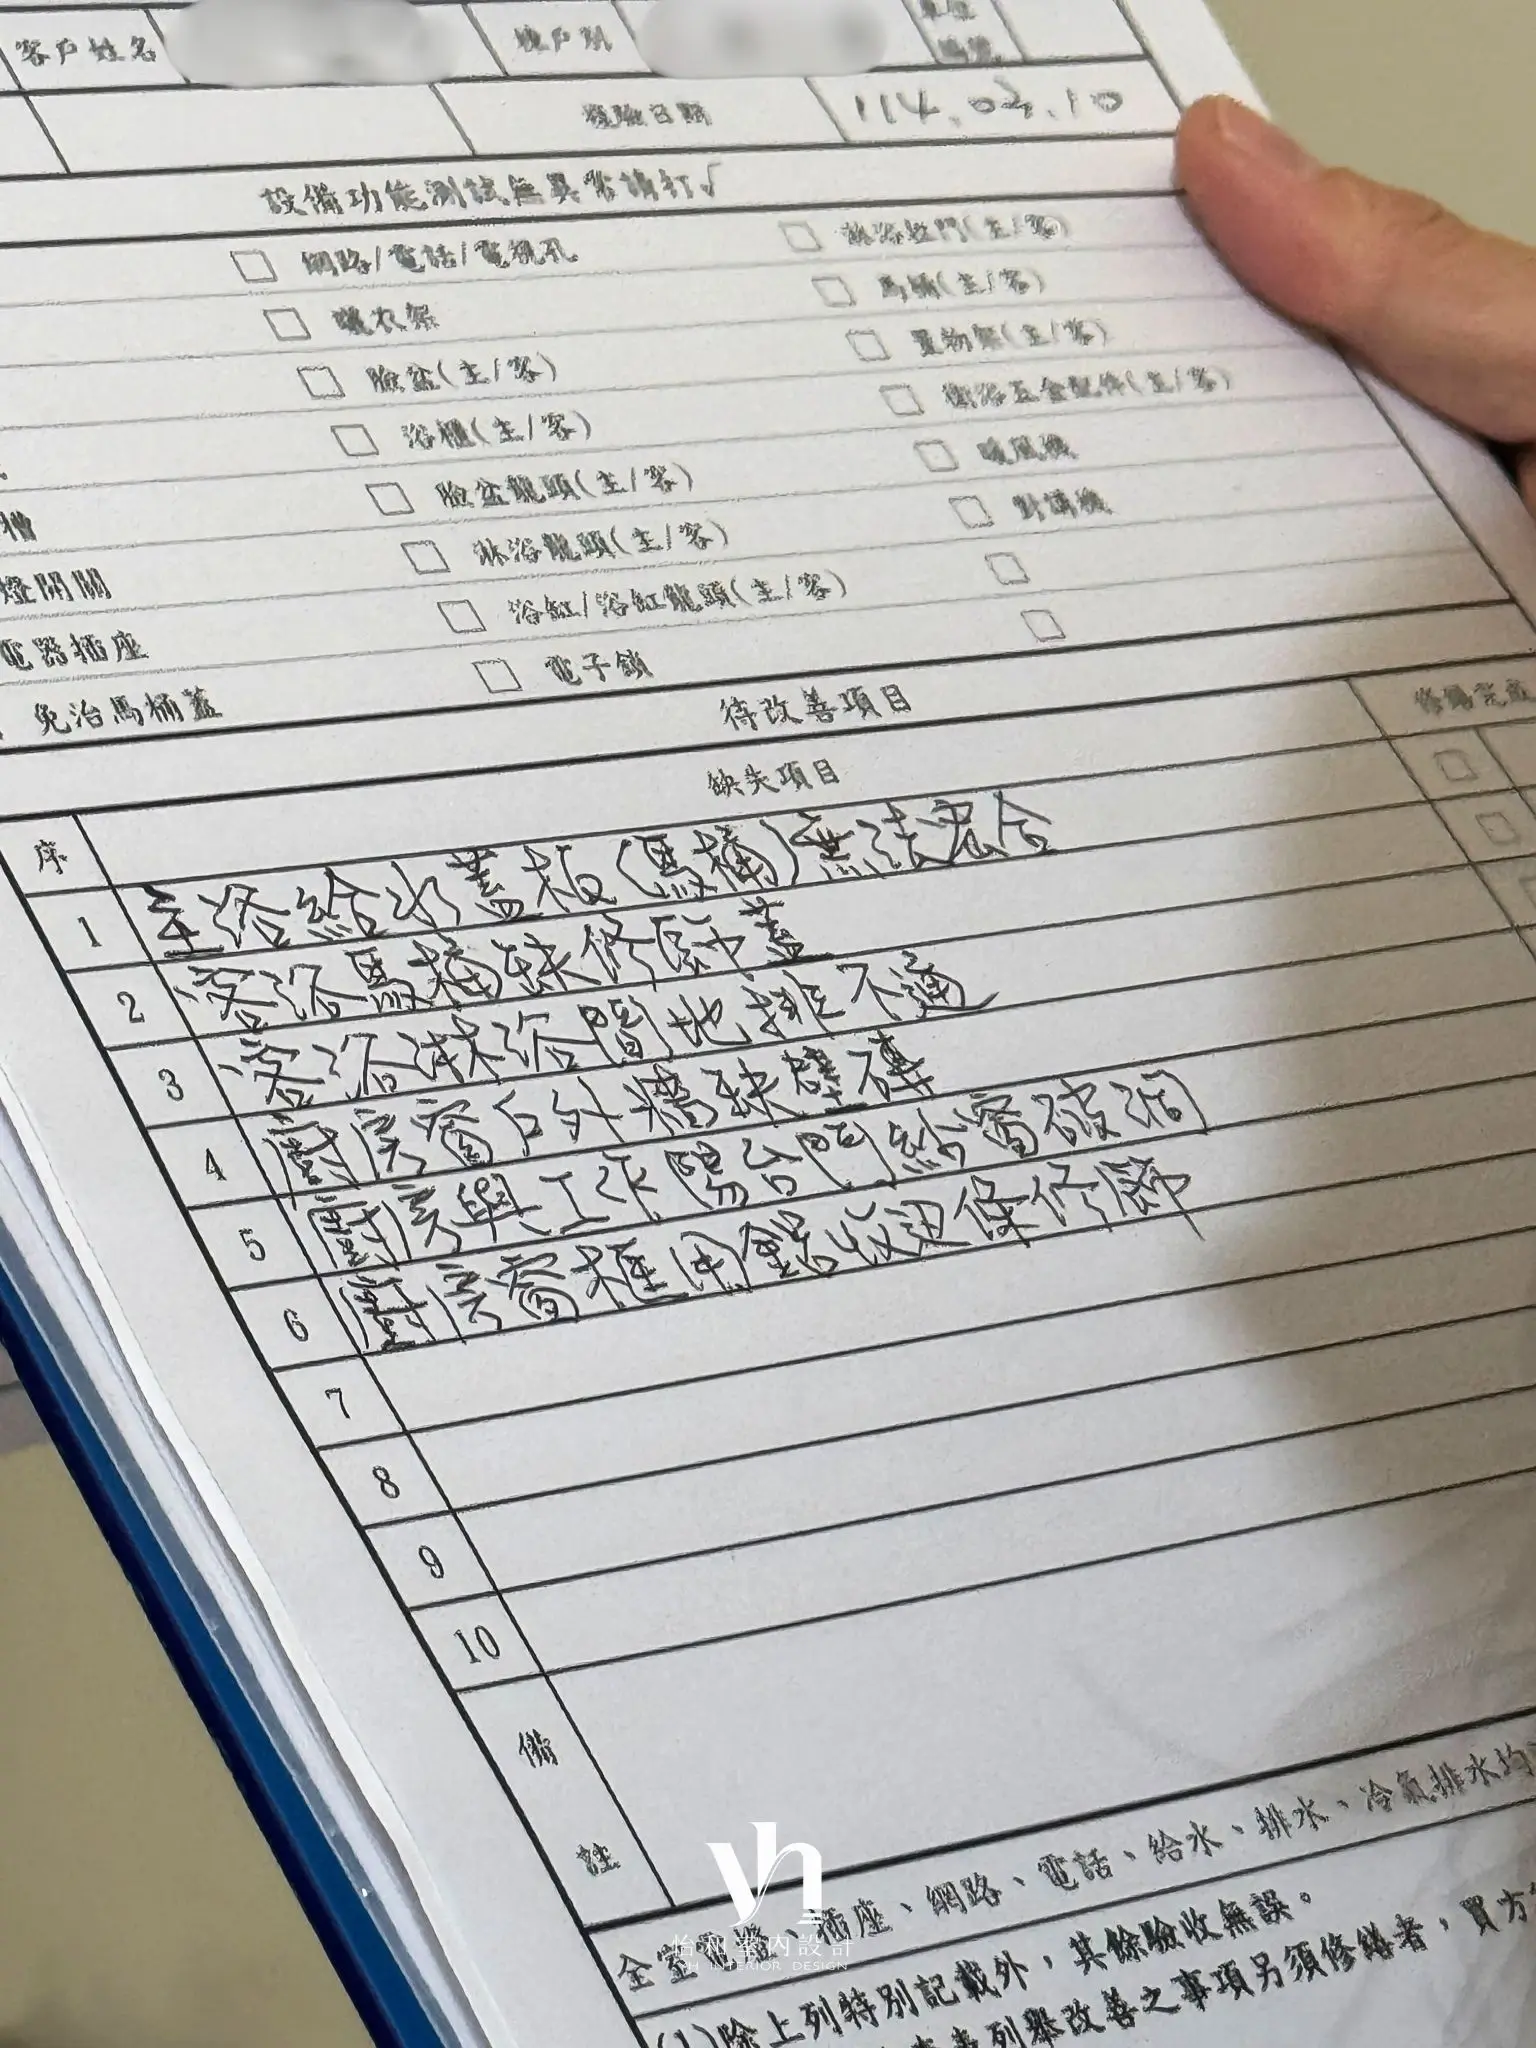 客戶姓名 棟戶別
驗收日期 114.03.10
設備功能測試無異常請打√
網路/電話/電視孔 淋浴拉門(主/客)
曬衣架 馬桶(主/客)
臉盆(主/客) 置物架(主/客)
浴櫃(主/客) 衛浴五金配件(主/客)
槽 臉盆龍頭(主/客) 暖風機
燈開關 淋浴龍頭(主/客) 對講機
電器插座 浴缸/浴缸龍頭(主/客)
免治馬桶蓋 電子鎖
待改善項目
序 缺失項目 修繕完
1 主浴給水蓋板(馬桶)無法密合
2 客浴馬桶缺修飾蓋
3 客浴淋浴間地排不通
4 廚房窗戶外牆缺壁磚
5 廚房與工作陽台門紗窗破洞
6 廚房窗框用鋁收邊條修飾
7
8
9
10
備註
全室電燈、插座、網路、電話、給水、排水、冷氣排水均
(1)除上列特別記載外，其餘驗收無誤。
列舉改善之事項另須修繕者，買方
yh
怡和室內設計
YH INTERIOR DESIGN